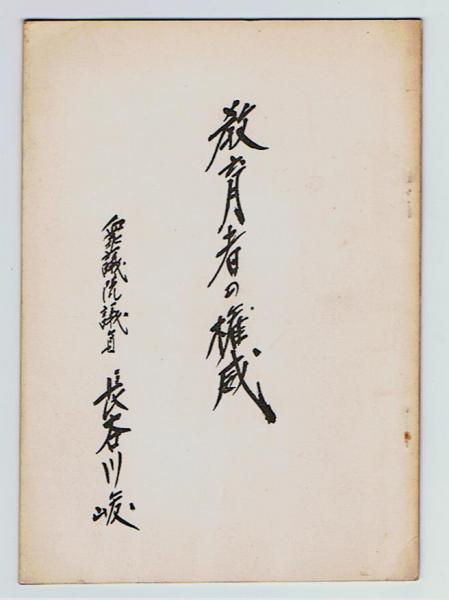 教育者の権威
衆議院議員 長谷川峻